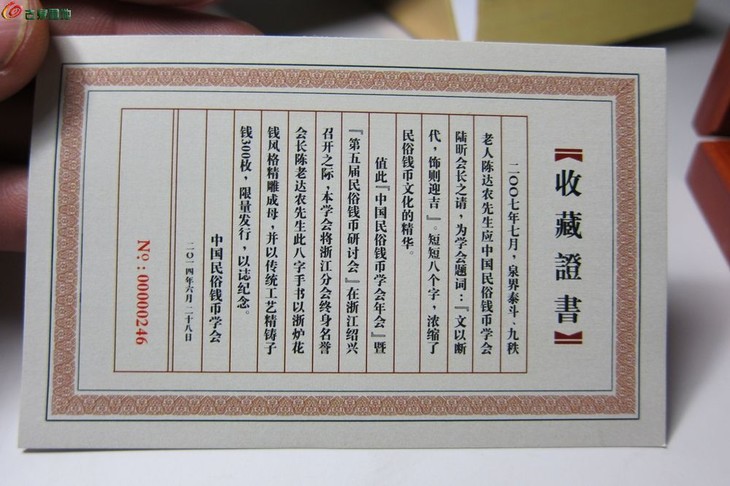 【收藏證書】
二〇〇七年七月，泉界泰斗、九秩
老人陈达农先生应中国民俗钱币学会
陆昕会长之请，为学会题词：『文以断
代，饰则迎吉』。短短八个字，浓缩了
民俗钱币文化的精华。
值此『中国民俗钱币学会年会』暨
『第五届民俗钱币研讨会』在浙江绍兴
召开之际，本学会将浙江分会终身名誉
会长陈老达农先生此八字手书以浙炉花
钱风格精雕成母，并以传统工艺精铸子
钱300枚，限量发行，以誌纪念。
中国民俗钱币学会
二〇一四年六月二十八日
Nº：00000246